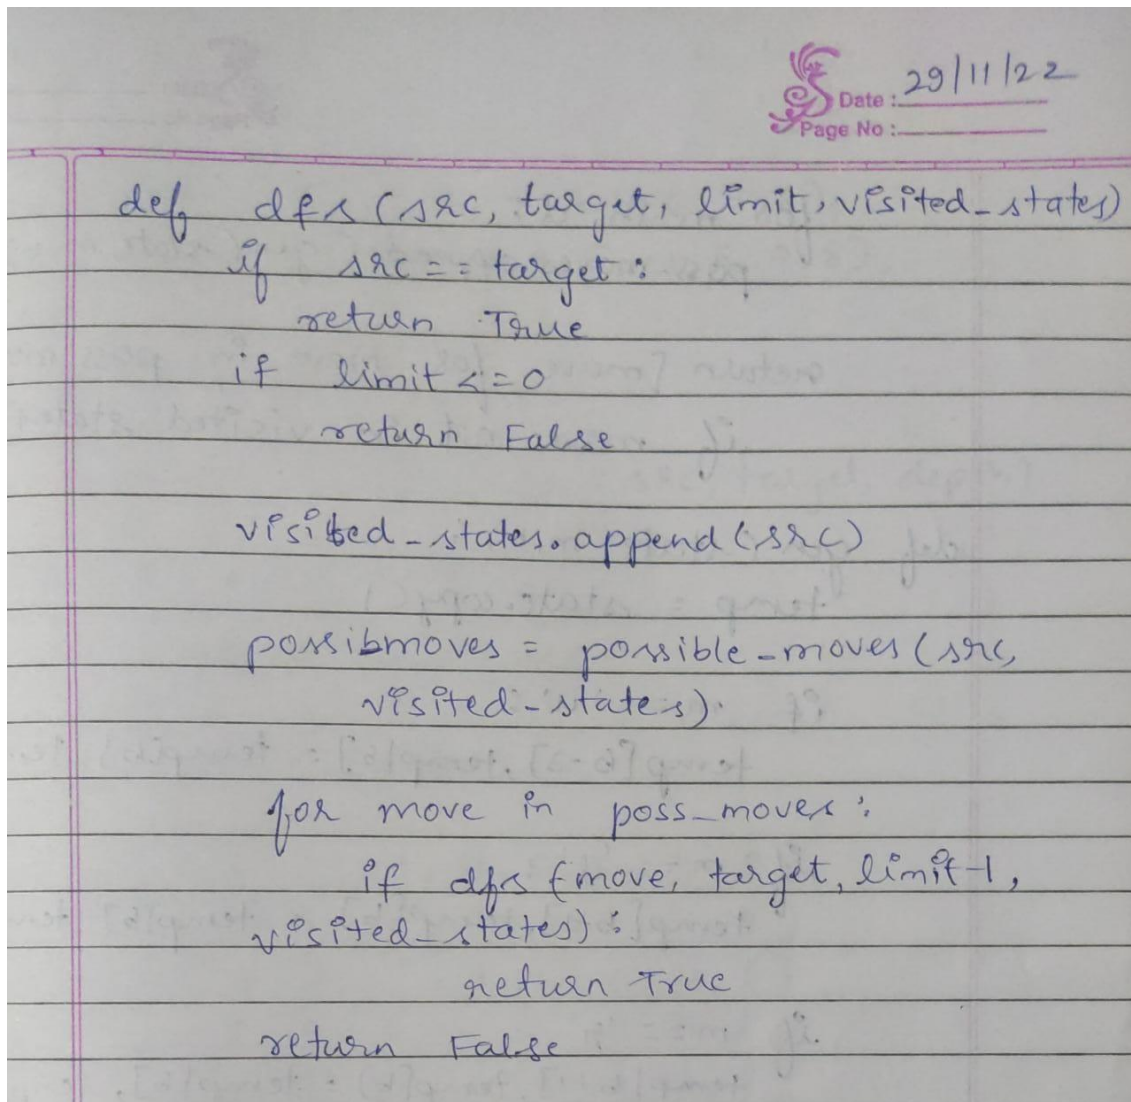 Date : 29/11/22
Page No :
def dfs (src, target, limit, visited_states)
if src == target :
return True
if limit <= 0
return False
visited_states.append (src)
possibmoves = possible_moves (src,
visited_states).
for move in poss_moves :
if dfs (move, target, limit-1,
visited_states) :
return True
return False